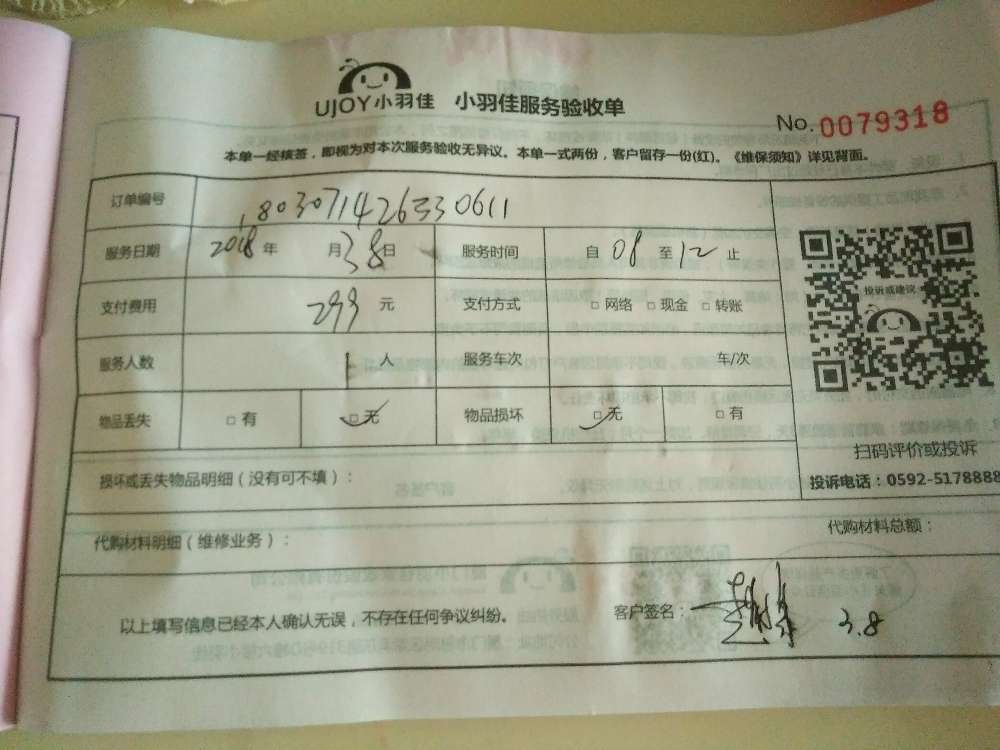 UJOY小羽佳 小羽佳服务验收单
No. 0079318
本单一经核签，即视为对本次服务验收无异议。本单一式两份，客户留存一份(红)。《维保须知》详见背面。
订单编号 180307142633 0611
服务日期 2018 年 月 3.8 日 服务时间 自 08 至 12 止
支付费用 299 元 支付方式 □ 网络 □ 现金 □ 转账
服务人数 1 人 服务车次 车/次
物品丢失 □ 有 □ 无 物品损坏 □ 无 □ 有
投诉或建议
扫码评价或投诉
投诉电话：0592-5178888
损坏或丢失物品明细（没有可不填）：
代购材料明细（维修业务）： 代购材料总额：
以上填写信息已经本人确认无误，不存在任何争议纠纷。 客户签名： 3.8